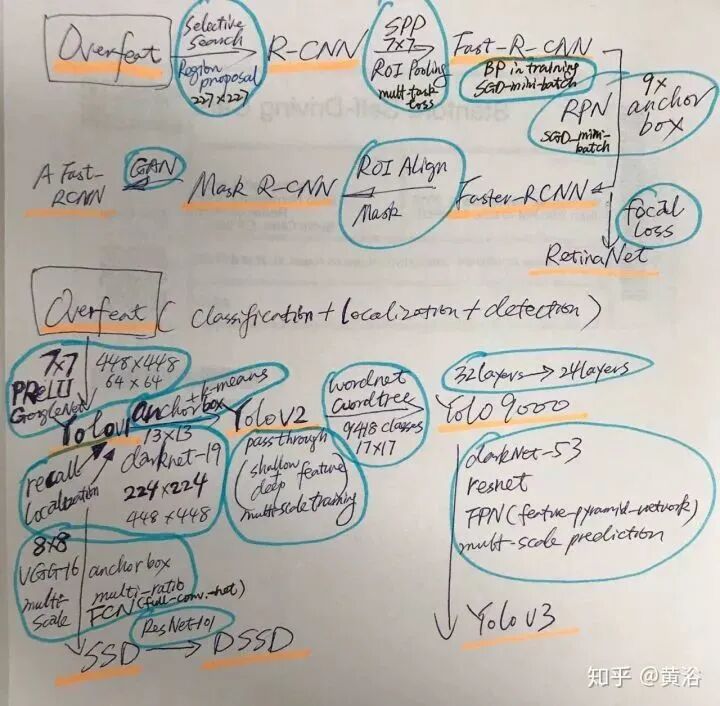 Overfeat
Selective
Search
Region
proposal
227×227
R-CNN
SPP
7×7
ROI Pooling
mult-task
loss
Fast-R-CNN
BP in training
SGD-mini-batch
RPN
SGD_mimi-
batch
9×
anchor
box
A Fast-
RCNN
GAN
Mask R-CNN
ROI Align
Mask
Faster-RCNN
focal
loss
RetinaNet
Overfeat (classification+localization+detection)
7×7
PReLU
GoogleNet
448×448
64×64
YoloV1
anchorbox
+k-means
13×13
darknet-19
224×224
448×448
recall
localization
YoloV2
passthrough
(shallow
deep feature)
multi-scale training
wordnet
wordtree
9418 classes
17×17
32layers→24layers
Yolo 9000
darkNet-53
resnet
FPN(feature-pyramid-network)
mult-scale prediction
Yolo V3
8×8
VGG-16
multi-
scale
anchorbox
multi-ratio
FCN(full-conv.-net)
ResNet-101
SSD
DSSD
知乎 @黄浴